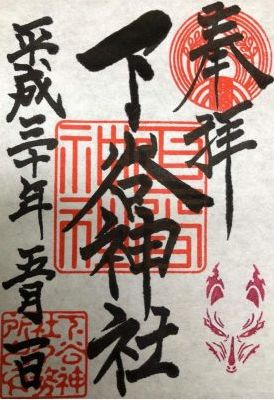 奉拝
下谷神社
平成三十年 五月一日
下谷神社